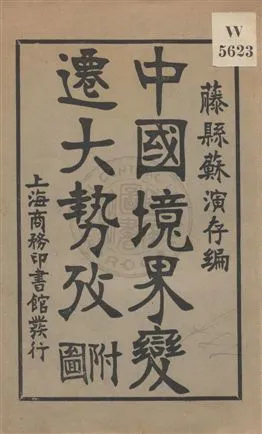 W
5623
藤縣蘇演存編
中國境界變
遷大勢攷
附圖
上海商務印書館發行